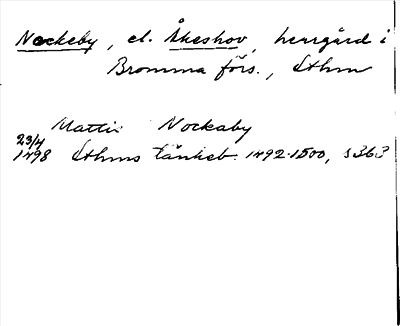 Nockeby, el. Åkeshov, herrgård i
Bromma förs., Sthm
Mattis Nockaby
23/4
1498 Sthms tänkeb. 1492-1500, s 363